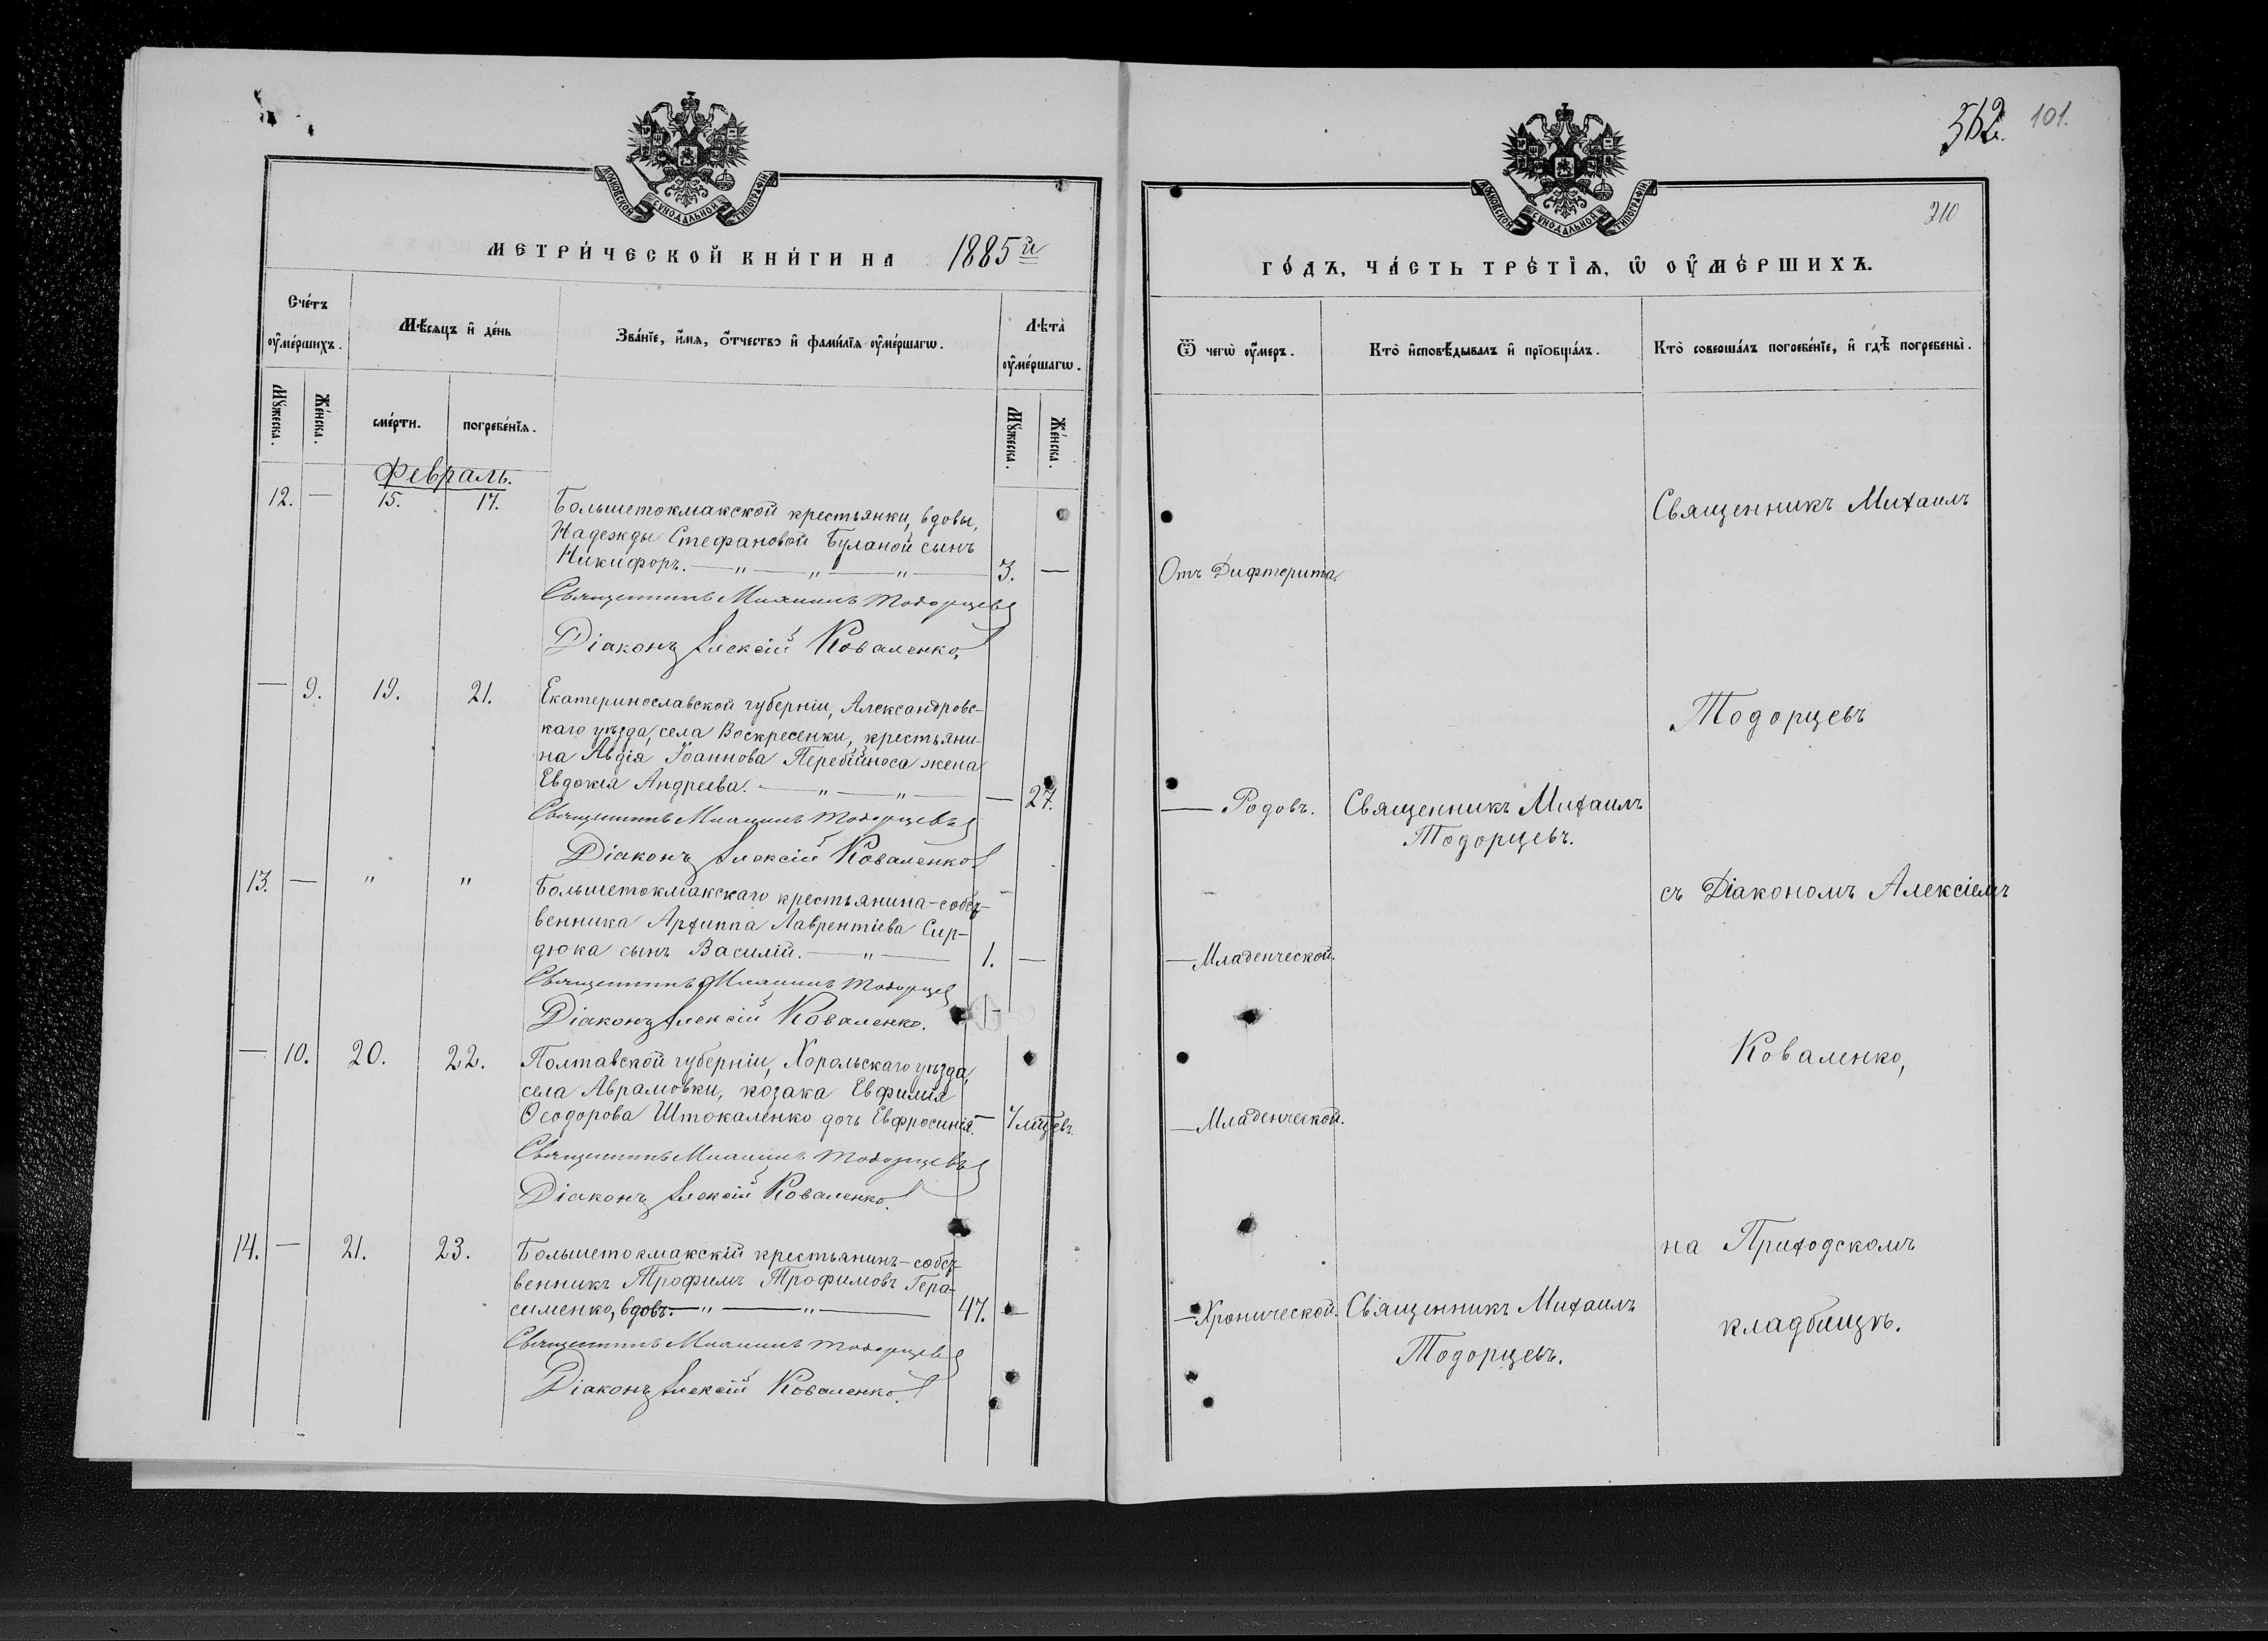 МОСКОВСКОЙ СѴНОДАЛЬНОЙ ТИПОГРАФІИ
МЕТРИ́ЧЕСКОЙ КНИ́ГИ НА 1885й
Сче́тъ ᲂу҆ме́ршихъ.
Мѣ́сяцъ и҆ де́нь
Зва́нїе, и҆́мѧ, ѻ҆́тчество и҆ фами́лїѧ ᲂу҆ме́ршагѡ.
Лѣта̀ ᲂу҆ме́ршагѡ.
Мꙋ́жеска.
Же́нска.
сме́рти.
погребе́нїѧ.
Мꙋ́жеска.
Же́нска.
Февраль.
12. — 15. 17. Большетокмакской крестьянки, вдовы,
Надежды Стефановой Буланой сынъ
Никифоръ. — " — " — " — 3. —
Священникъ Михаилъ Тодорцевъ
Діаконъ Алексій Коваленко.
— 9. 19. 21. Екатеринославской губерніи, Александровс-
каго уѣзда, села Воскресенки, крестьяни-
на Авдія Іоаннова Перебійноса жена
Евдокія Андреева. — " — " — — 27.
Священникъ Михаилъ Тодорцевъ
Діаконъ Алексій Коваленко
13. — " " Большетокмакскаго крестьянина-собст-
венника Архиппа Лаврентіева Сир-
дюка сынъ Василій. — " — 1. —
Священникъ Михаилъ Тодорцев
Діаконъ Алексій Коваленко.
— 10. 20. 22. Полтавской губерніи, Хорольскаго уѣзда,
села Аврамовки, козака Евфимія
Ѳеодорова Штокаленко дочь Евфросинія. — 7 мѣсцевъ.
Священникъ Михаилъ Тодорцевъ
Діаконъ Алексій Коваленко.
14. — 21. 23. Большетокмакскій крестьянинъ-собст-
венникъ Трофимъ Трофимовъ Гера-
сименко, вдовъ. — " — " — 47. —
Священникъ Михаилъ Тодорцевъ
Діаконъ Алексій Коваленко.
562. 101.
210
МОСКОВСКОЙ СѴНОДАЛЬНОЙ ТИПОГРАФІИ
ГО́ДЪ, ЧА́СТЬ ТРЕ́ТЇѦ, Ѡ҆ ОУ҆МЕ́РШИХЪ.
Ѿ чегѡ̀ ᲂу҆́меръ.
Кто̀ и҆сповѣ́дывалъ и҆ прїобща́лъ.
Кто̀ соверша́лъ погребе́нїе, и҆ гдѣ̀ погребены̀.
Священникъ Михаилъ
Отъ Дифтерита.
Тодорцевъ
— Родовъ. Священникъ Михаилъ
Тодорцевъ.
съ Діакономъ Алексіемъ
— Младенческой.
Коваленко,
— Младенческой.
на Приходскомъ
— Хронической. Священникъ Михаилъ
кладбищѣ.
Тодорцевъ.